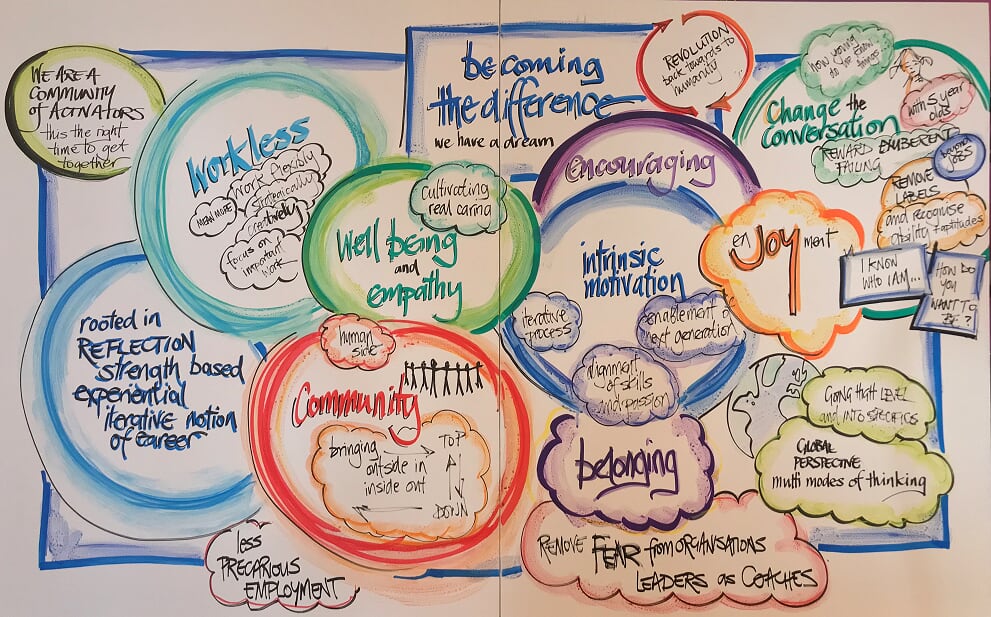 WE ARE A
COMMUNITY
of ACTIVATORS
thus the right
time to get
together
becoming
the difference
we have a dream
REVOLUTION
back towards to
humanity
how young
do you know
things
with 5 year
olds
Change the
conversation
REWARD EXUBERENT
FAILING
beyond
JOBS
REMOVE
LABELS
and recognise
ability + aptitudes
I KNOW
WHO I AM...
HOW DO
YOU
WANT TO
BE?
Workless
Work flexibly
MEAN MORE
Creatively
focus on
important
work
cultivating
real caring
Well being
and
empathy
encouraging
intrinsic
motivation
iterative
process
enablement of
next generation
alignment
of skills
and passion
enJOYment
rooted in
REFLECTION
strength based
experiential
iterative notion
of career
human
side
Community
bringing
outside in
inside out
TOP
DOWN
belonging
GOING that LEVEL
and INTO SPECIFICS
GLOBAL
PERSPECTIVE
multi modes of thinking
less
PRECARIOUS
EMPLOYMENT
REMOVE FEAR from ORGANISATIONS
LEADERS as COACHES